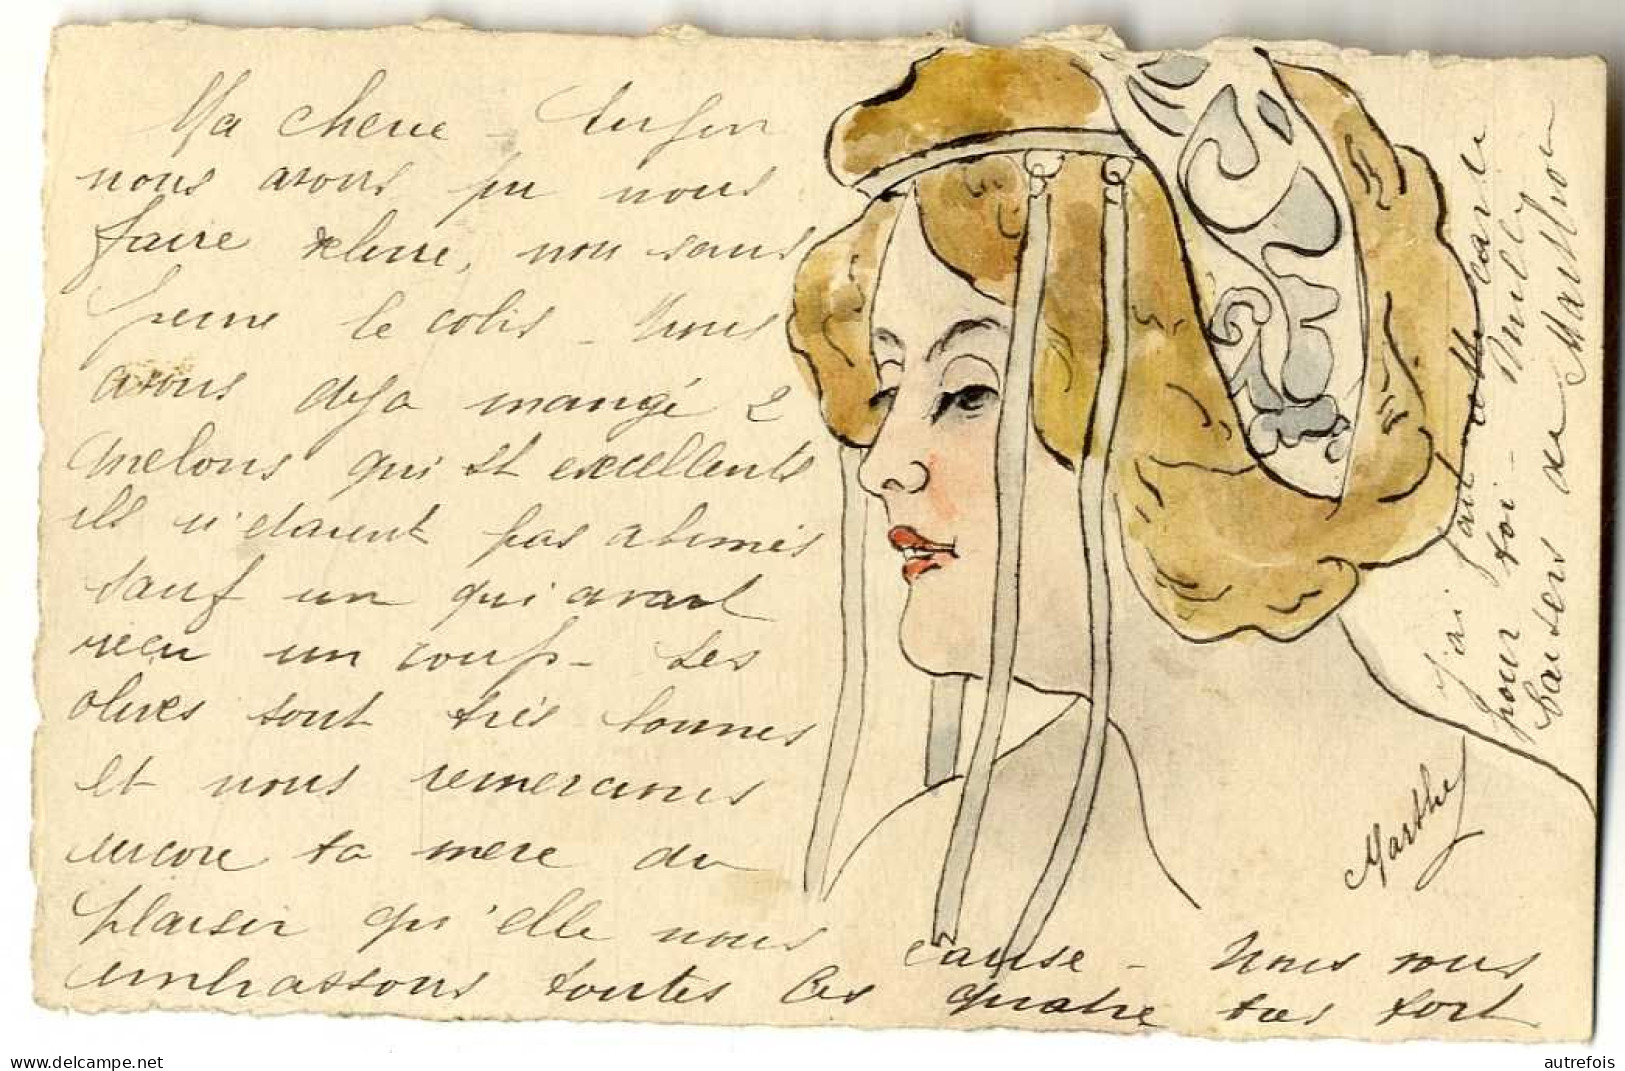 Ma cherie - Enfin
nous avons pu nous
faire delivre, non sans
peine le colis - Nous
avons deja mangé 2
melons qui st excellents
ils n'étaient pas abimés
sauf un qui avait
reçu un coup - Les
olives sont très bonnes
et nous remercions
encore ta mere du
plaisir qu'elle nous
cause - Nous vous
embrassons toutes les quatre tres fort
J'ai fait cette carte
pour toi - Mille
baisers de Marthon
Marthe
delcampe.net
autrefois